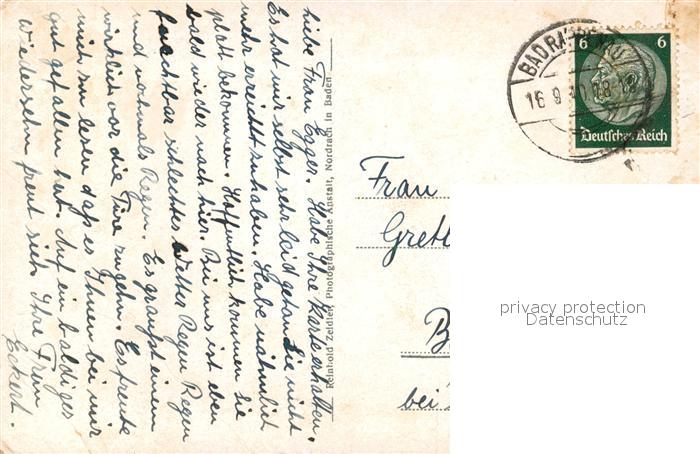 liebe Frau Egger. Habe Ihre Karte erhalten.
Es hat mir selbst sehr leid getan Sie nicht
mehr erreicht zu haben. Habe nähmlich
platt bekommen. Hoffentlich kommen Sie
bald wieder nach hier. Bei uns ist eben
furchtbar schlechtes Wetter Regen Regen
und nochmals Regen. Es graust einen
wirklich vor die Türe zu gehn. Es freute
mich zu lesen daß es Ihnen bei mir
gut gefallen hat. Auf ein baldiges
wiedersehn freut sich Ihre Frau
Eckert.
Reinhold Zeidler, Photographische Anstalt, Nordrach in Baden
BAD RAPPENAU
16 9 18
6 6
Deutsches Reich
Frau
Gretl
bei
privacy protection
Datenschutz